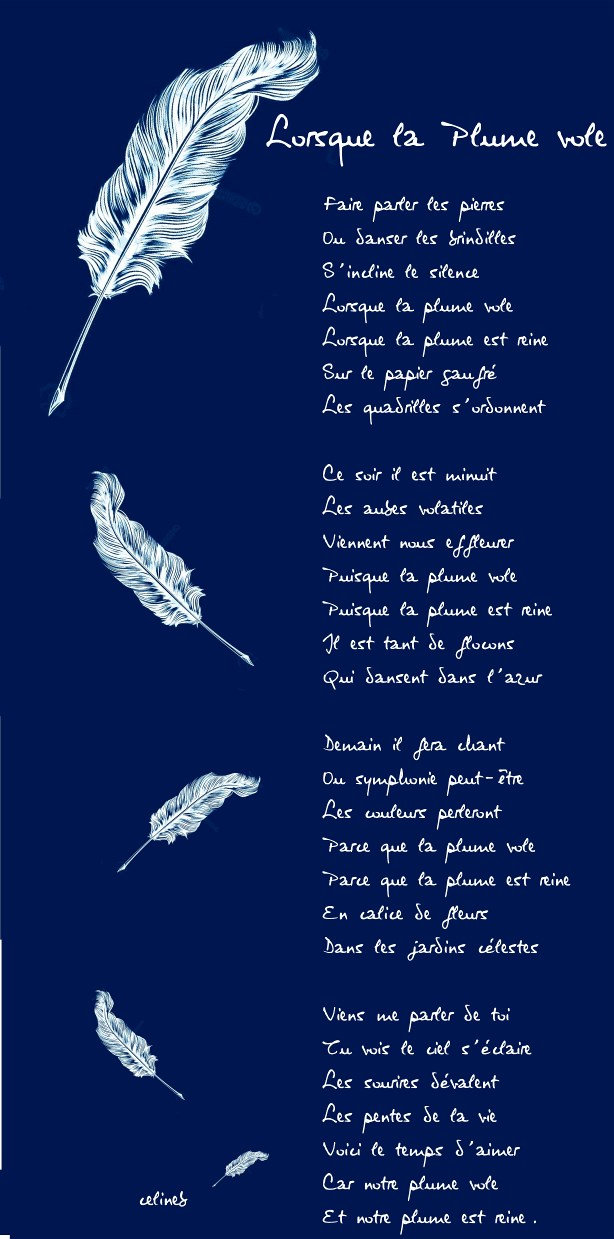 Lorsque la Plume vole
Faire parler les pierres
Ou danser les brindilles
S'incline le silence
Lorsque la plume vole
Lorsque la plume est reine
Sur le papier gaufré
Les quadrilles s'ordonnent
Ce soir il est minuit
Les aubes volatiles
Viennent nous effleurer
Puisque la plume vole
Puisque la plume est reine
Il est tant de flocons
Qui dansent dans l'azur
Demain il fera chant
Ou symphonie peut-être
Les couleurs perleront
Parce que la plume vole
Parce que la plume est reine
En calice de fleurs
Dans les jardins célestes
Viens me parler de toi
Tu vois le ciel s'éclaire
Les sourires dévalent
Les pentes de la vie
Voici le temps d'aimer
Car notre plume vole
Et notre plume est reine.
celineb